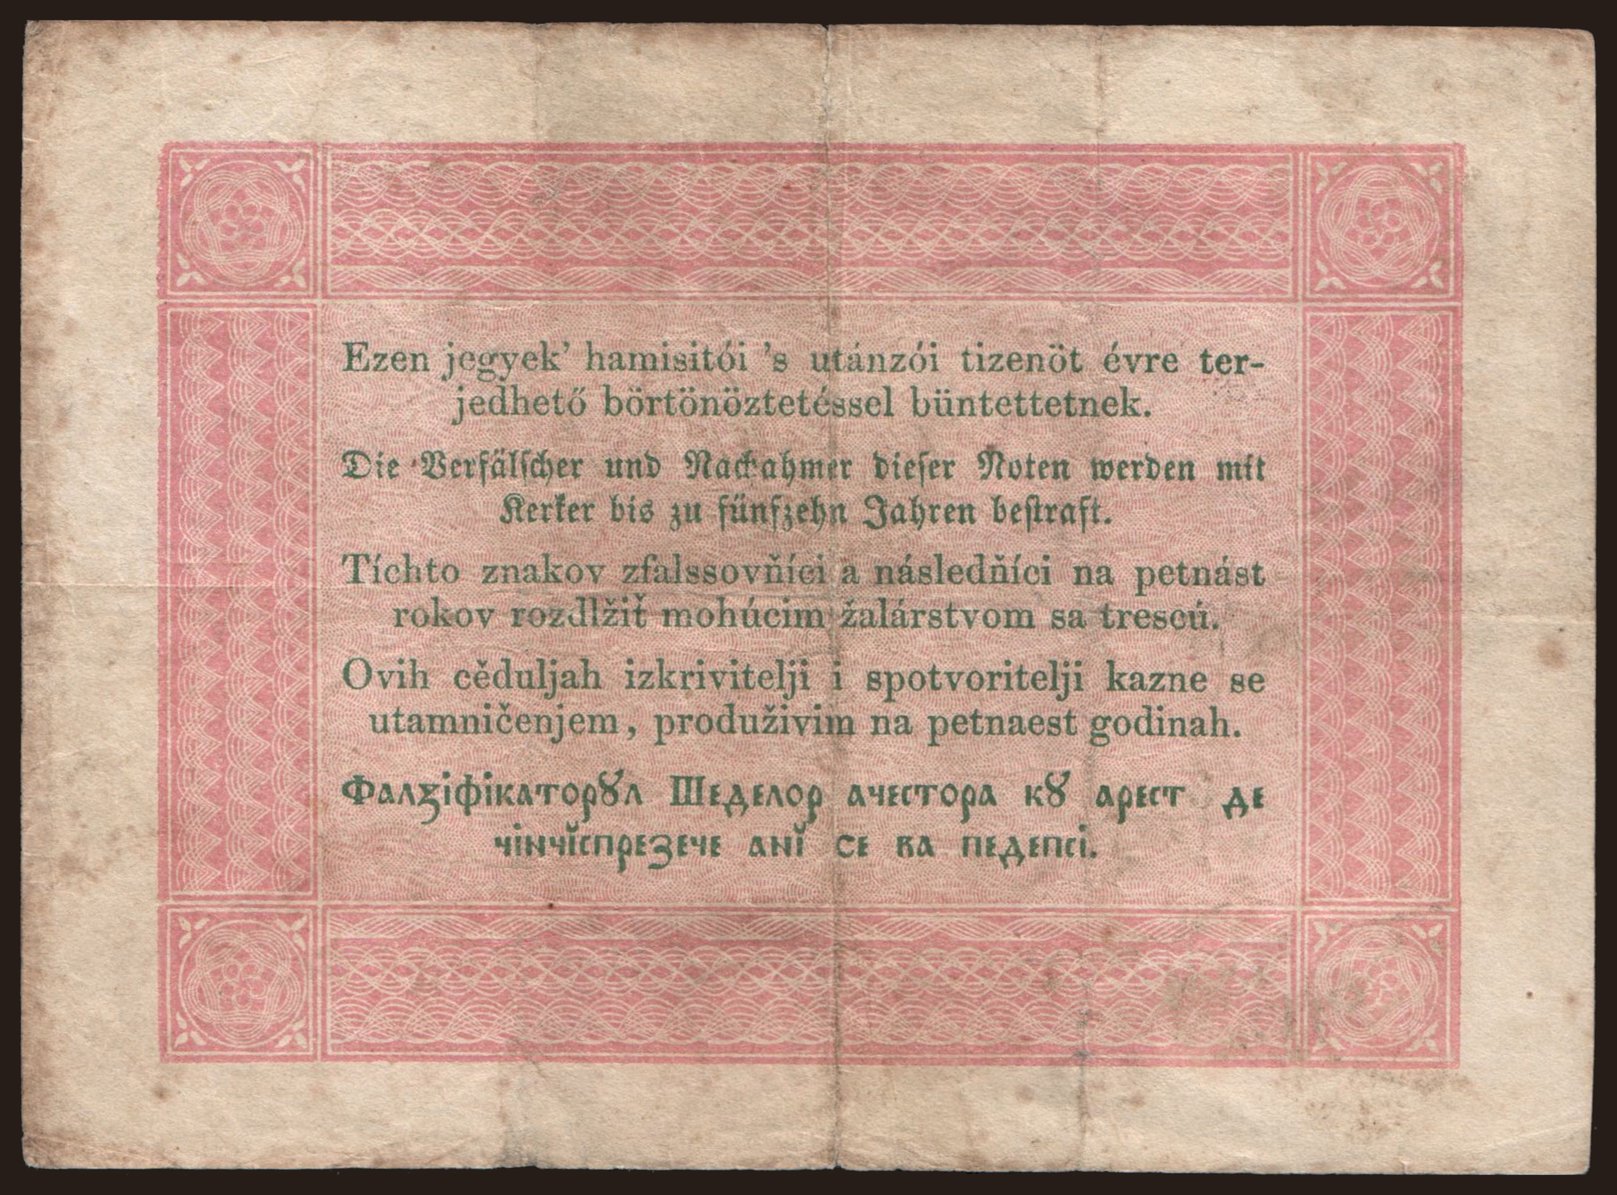 Ezen jegyek’ hamisitói ’s utánzói tizenöt évre ter-
jedhető börtönöztetéssel büntettetnek.
Die Verfälscher und Nachahmer dieser Noten werden mit
Kerker bis zu fünfzehn Jahren bestraft.
Tíchto znakov zfalssovňíci a následňíci na petnást
rokov rozdlžiť mohúcim žalárstvom sa trescú.
Ovih cěduljah izkrivitelji i spotvoritelji kazne se
utamničenjem, produživim na petnaest godinah.
Фалѯіфікаторꙋл Шеделор ачестора кꙋ арест де
чінчĭспрезече анĭ се ва педепсі.